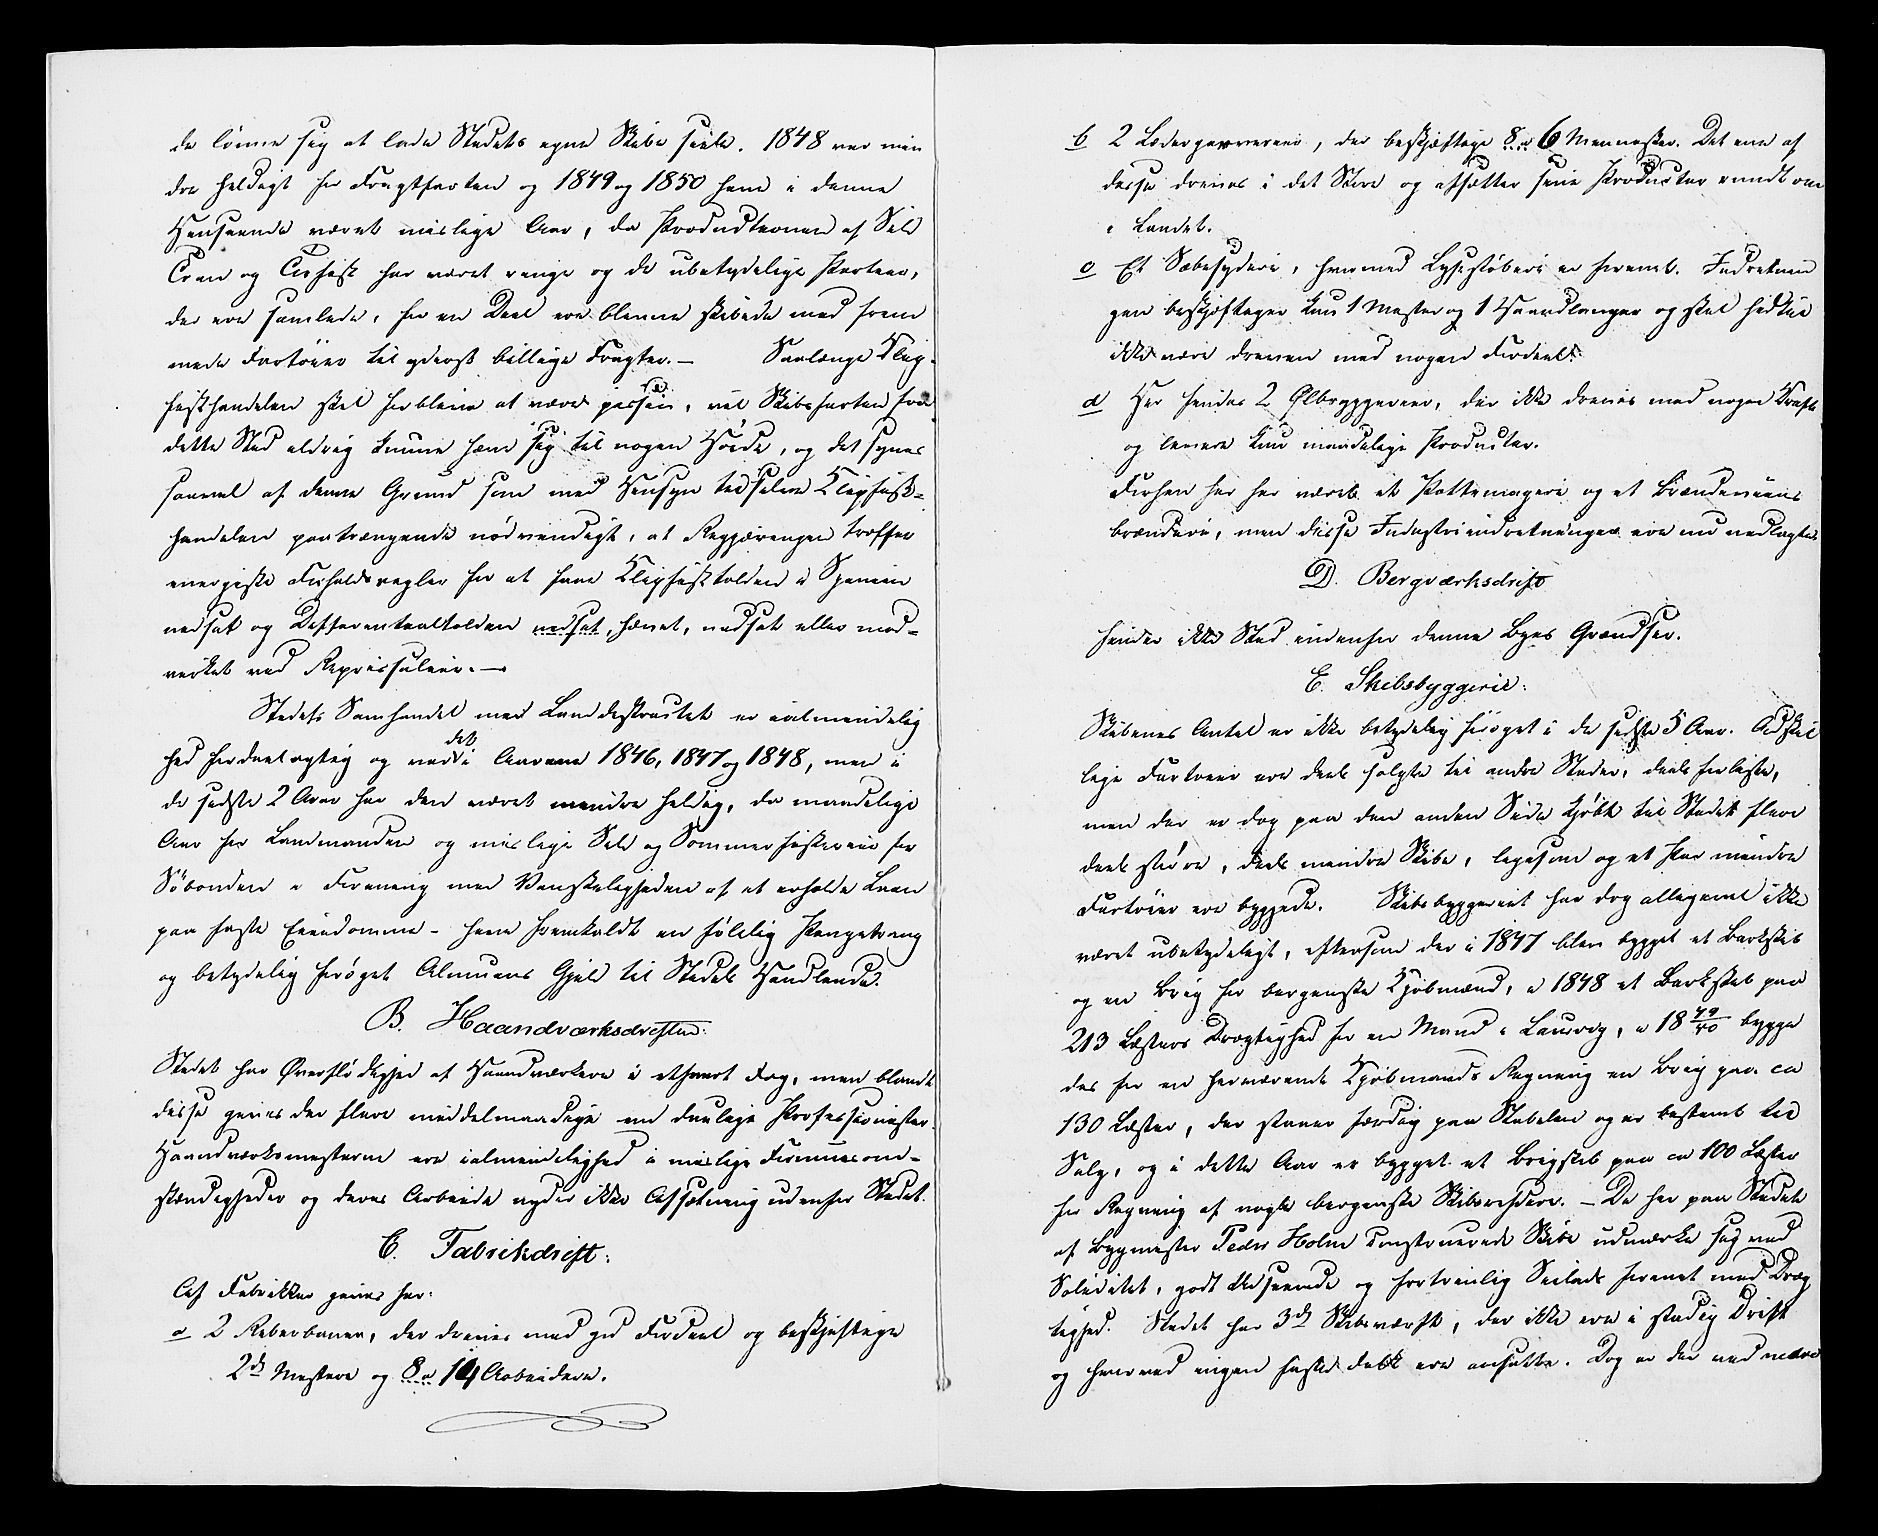 de lönne sig at lade Stedets egne Skibe seile. 1848 var min
dre heldigt for Fragtfarten og 1849 og 1850 have i denne
Henseende været mislige Aar, da Productionen af Sild
Tran og Tørfisk har været ringe og de ubetydelige Partier,
der ere samlede, for en Deel ere blevne skibede med frem
mede Fartöier til yderst billige Fragter. — Saalænge Klip-
fiskhandelen skal forblive at være passiv, vil Skibsfarten fra
dette Sted aldrig kunne hæve sig til nogen Höide, og det synes
saavel af denne Grund som med Hensyn til selve Klipfisk-
handelen paatrængende nödvendigt, at Regjæringen træffer
energiske Forholdsregler for at faae Klipfisktolden i Spanien
nedsat og Differentialtolden nedsat, hævet, nedsat eller mod-
virket ved Repressalier. —
Stedets Samhandel med Landdistrictet er ialmindelig
hed fordeelagtig og var det i Aarene 1846, 1847 og 1848, men i
de sidste 2 Aar har den været mindre heldig, da maadelige
Aar for Landmanden og mislige Sild og Sommerfiskerier for
Söbonden i Forening med Vanskeligheden af at erholde Laan
paa faste Eiendomme - have fremkaldt en fölelig Pengetrang
og betydelig forøget Almuens Gjeld til Stedets Handlende.
B. Haandværksdriften:
Stedet har Overflödighed af Haandværkere i ethvert Fag, men blandt
disse gives der flere middelmaadige end duelige Professionister.
Haandværksmesterne ere ialmindelighed i mislige Formuesom-
stændigheder og deres Arbeide nyder ikke Afsætning udenfor Stedet.
C. Fabrikdrift:
Af Fabrikker gives her:
a 2 Reberbaner, der drives med god Fordeel og beskjæftige
2de Mestere og 8 a 14 Arbeidere.
b 2 Lædergarverier, der beskjæftige 8 a 6 Mennesker. Det ene af
disse drives i det Store og afsætter sine Producter rundt om
i Landet.
c Et Sæbesyderi, hvormed Lysestøberi er forenet. Indretnin
gen beskjæftiger kun 1 Mester og 1 Haandlanger og skal hidtil
ikke være dreven med nogen Fordeel.
d Her findes 2 Ølbryggerier, der ikke drives med nogen Kraft
og levere kun maadelige Producter.
Forhen har her været et Pottemageri og et Brændeviins
brænderi, men disse Industriindretninger ere nu nedlagte.
D. Bergværksdrift
finder ikke Sted indenfor denne Byes Grændser.
E. Skibsbyggerie:
Skibenes Antal er ikke betydelig forøget i de sidste 5 Aar. Adskil
lige Fartøier ere deels solgte til andre Steder, deels forliste,
men der er dog paa den anden Side kjöbt til Stedet flere
deels större, deels mindre Skibe, ligesom og et Par mindre
Fartøier ere byggede. Skibsbyggeriet har dog alligevel ikke
været ubetydeligt, eftersom der i 1847 blev bygget et Barkskib
og en Brig for bergenske Kjöbmænd, i 1848 et Barkskib paa
213 Læsters Drægtighed for en Mand i Laurvig, i 18 49/50 bygge
des for en herværende Kjöbmands Regning en Brig paa ca
130 Læster, der staaer færdig paa Stabelen og er bestemt til
Salg, og i dette Aar er bygget et Brigskib paa ca 100 Læster
for Regning af nogle bergenske Skibsrhedere. — De her paa Stedet
af Bygmester Peder Holm construerede Skibe udmærke sig ved
Soliditet, godt Udseende og fortrinlig Seilads forenet med Dræg
tighed. Stedet har 3de Skibsværft, der ikke ere i stadig Drift
og hvorved ingen faste Folk ere ansatte. Dog er der ved nære